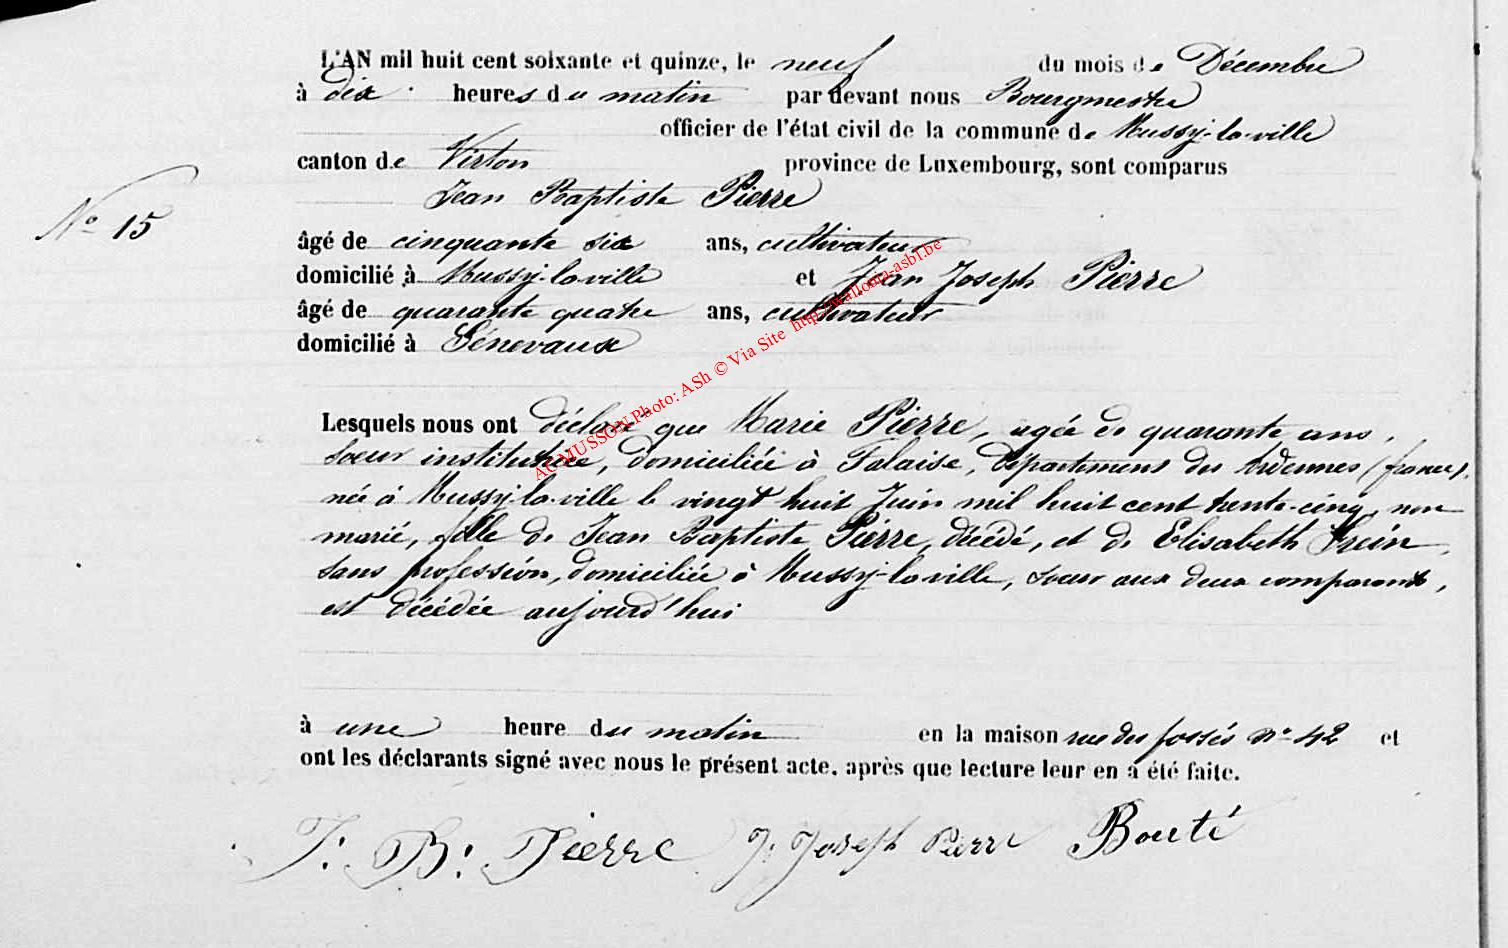 L'AN mil huit cent soixante et quinze, le neuf du mois de Décembre
à dix heures du matin par devant nous Bourgmestre
officier de l'état civil de la commune de Mussy-la-ville
canton de Virton province de Luxembourg, sont comparus
Jean Baptiste Pierre
N° 15
âgé de cinquante six ans, cultivateur
domicilié à Mussy-la-ville et Jean Joseph Pierre
âgé de quarante quatre ans, cultivateur
domicilié à Génevaux
Lesquels nous ont déclaré que Marie Pierre, agée de quarante ans,
Soeur institutrice, domiciliée à Falaise, Département des Ardennes (france),
née à Mussy-la-ville le vingt huit Juin mil huit cent trente-cinq, non
marié, fille de Jean Baptiste Pierre, décédé, et de Elisabeth
sans profession, domiciliée à Mussy-la-ville, soeur aux deux comparants,
est décédée aujourd'hui
à une heure du matin en la maison rue des fossés n° 42 et
ont les déclarants signé avec nous le présent acte, après que lecture leur en a été faite.
J. B. Pierre J. Joseph Pierre Bouté
AC MUSSON Photo: ASh © Via Site http://wallonia-asbl.be